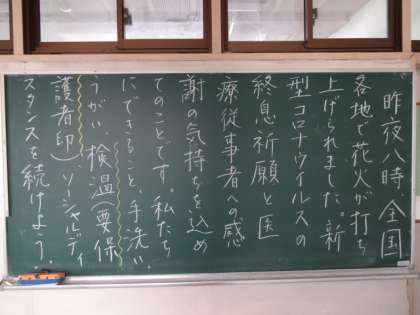 昨夜八時、全国
各地で花火が打ち
上げられました。新
型コロナウイルスの
終息祈願と医
療従事者への感
謝の気持ちを込め
てのことです。私たち
にできること、手洗い、
うがい、検温(要保
護者印)ソーシャルディ
スタンスを続けよう。